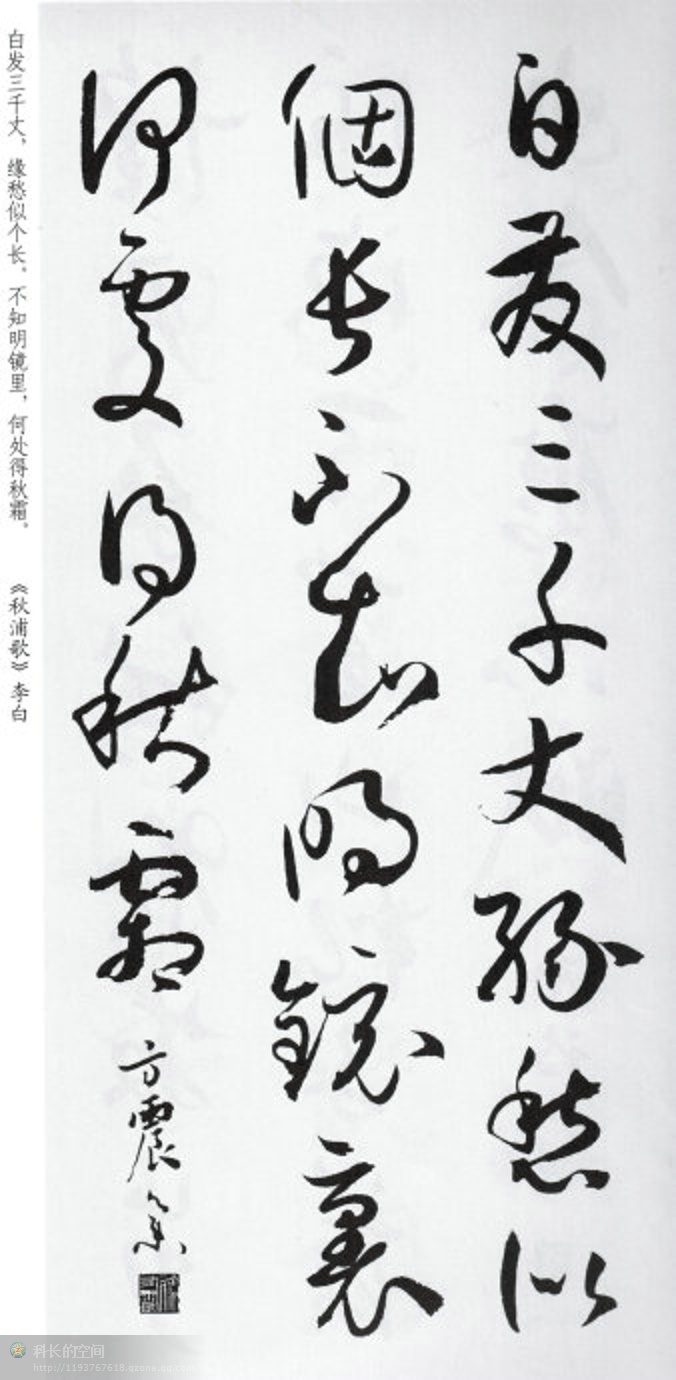 白髮三千丈緣愁似
個長不知明鏡裏
何處得秋霜
方震
白发三千丈，缘愁似个长。不知明镜里，何处得秋霜。
《秋浦歌》李白
科长的空间
http://1193767618.qzone.qq.com